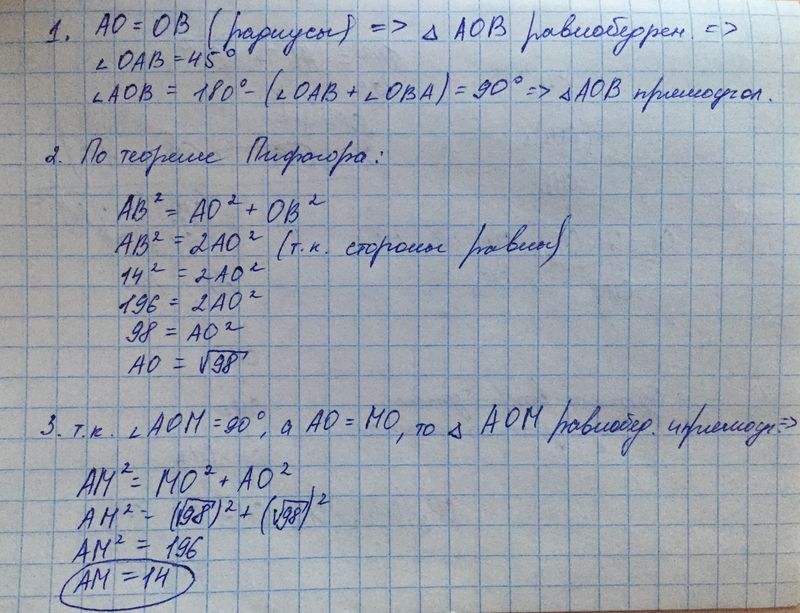 1. AO = OB (радиусы) => △ AOB равнобедрен. =>
∠OAB = 45°
∠AOB = 180° - (∠OAB + ∠OBA) = 90° => △AOB прямоугол.
2. По теореме Пифагора:
AB² = AO² + OB²
AB² = 2AO² (т.к. стороны равны)
14² = 2AO²
196 = 2AO²
98 = AO²
AO = √98
3. т.к. ∠AOM = 90°, а AO = MO, то △ AOM равнобед. и прямоуг. =>
AM² = MO² + AO²
AM² = (√98)² + (√98)²
AM² = 196
AM = 14